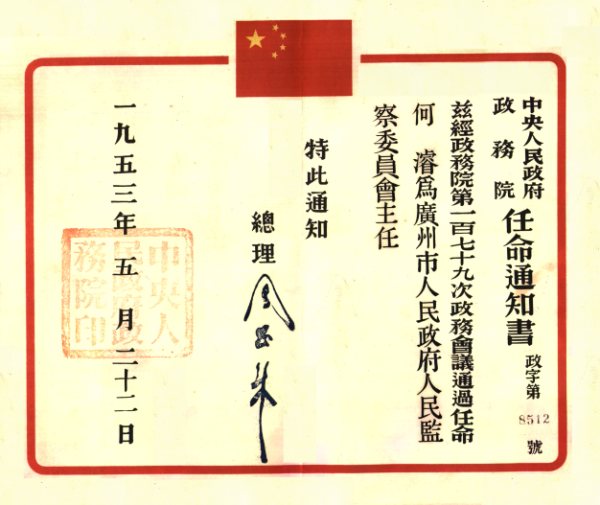 中央人民政府
政務院
任命通知書
政字第
8512
號
茲經政務院第一百七十九次政務會議通過任命
何濬爲廣州市人民政府人民監
察委員會主任
特此通知
總理
周恩來
一九五三年五月二十二日
中央人
民政府政
務院印